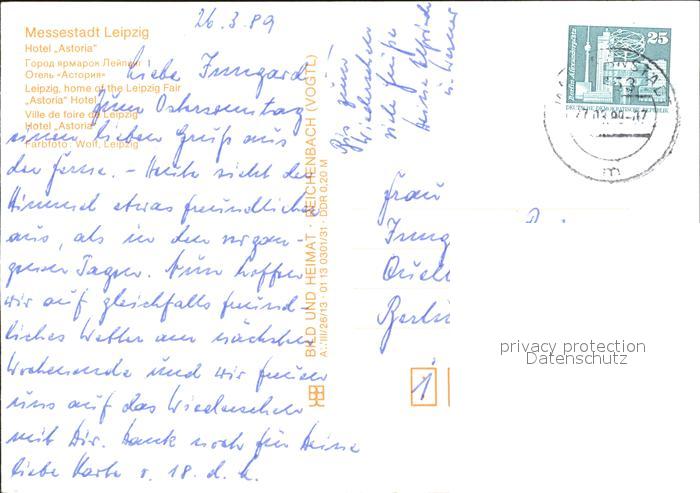 26.3.89
Messestadt Leipzig
Hotel „Astoria“
Город ярмарок Лейпциг
Отель «Астория»
Leipzig, home of the Leipzig Fair
„Astoria“ Hotel
Ville de foire de Leipzig
Hotel „Astoria“
Farbfoto: Wolf, Leipzig
Liebe Irmgard!
Zum Ostersonntag
einen lieben Gruß aus
der Ferne. – Heute sieht der
Himmel etwas freundlicher
aus, als in den vergan-
genen Tagen. Nun hoffen
wir auf gleichfalls freund-
liches Wetter am nächsten
Wochenende und wir freuen
uns auf das Wiedersehen
mit Dir. Dank noch für Deine
liebe Karte v. 18. d. M.
Bis zum
Wiedersehen
viele Grüße
Deine Elfriede
u. Werner
BILD UND HEIMAT · REICHENBACH (VOGTL)
A1/III/26/13 · 01 13 0301/31 · DDR 0,20 M
Frau
Irmg
Berlin
1
25
Berlin, Alexanderplatz
DEUTSCHE DEMOKRATISCHE REPUBLIK
27.03.89-07
m
privacy protection
Datenschutz